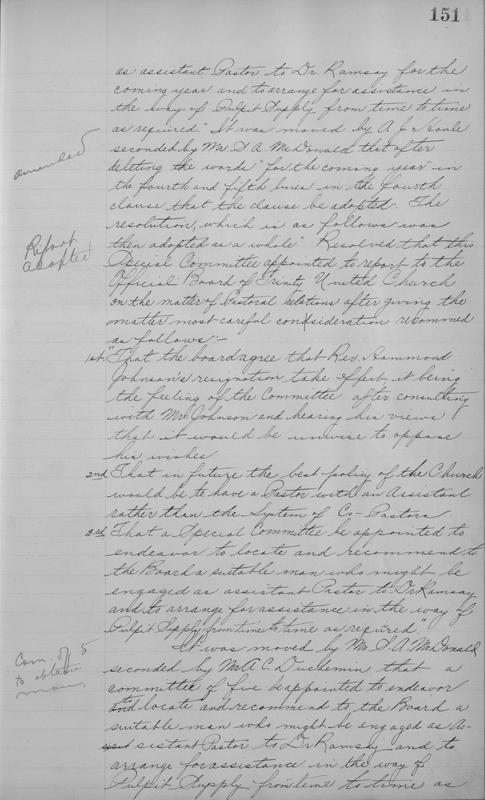 151
as assistant Pastor to Dr. Ramsay for the
coming year and to arrange for assistance in
the way of Pulpit Supply from time to time
as required." It was moved by A. J.
amended
seconded by Mr. S A McDonald that after
deleting the words "for the coming year" in
the fourth and fifth lines in the fourth
clause that the clause be adopted. The
resolution, which is as follows was
Report
adopted
then adopted as a whole "Resolved that this
Special Committee appointed to report to the
Official Board of Trinity United Church
on the matter of Pastoral relations after giving the
matter most careful consideration recommed
as follows:-
1st. "That the board agree that Rev. Hammond
Johnson's resignation take effect, it being
the feeling of the Committee after consulting
with Mr Johnson and hearing his views
that it would be unwise to oppose
his wishes.
2nd That in future the best policy of the Church
would be to have a Pastor with an Assistant
rather than the System of Co-Pastors.
3rd That a Special Committee be appointed to
endeavor to locate and recommend to
the Board a suitable man who might be
engaged as assistant Pastor to Dr Ramsay
and to arrange for assistance in the way of
Pulpit Supply from time to time as required."
It was moved by Mr. S. A. McDonald
Com. of 5
to obtain
man
seconded by Mr A. C. Duchemin that a
committee of five be appointed to endeavor
to locate and recommend to the Board a
suitable man who might be engaged as As-
sistant Pastor to Dr Ramsay and to
arrange for assistance in the way of
Pulpit Supply from time to time as